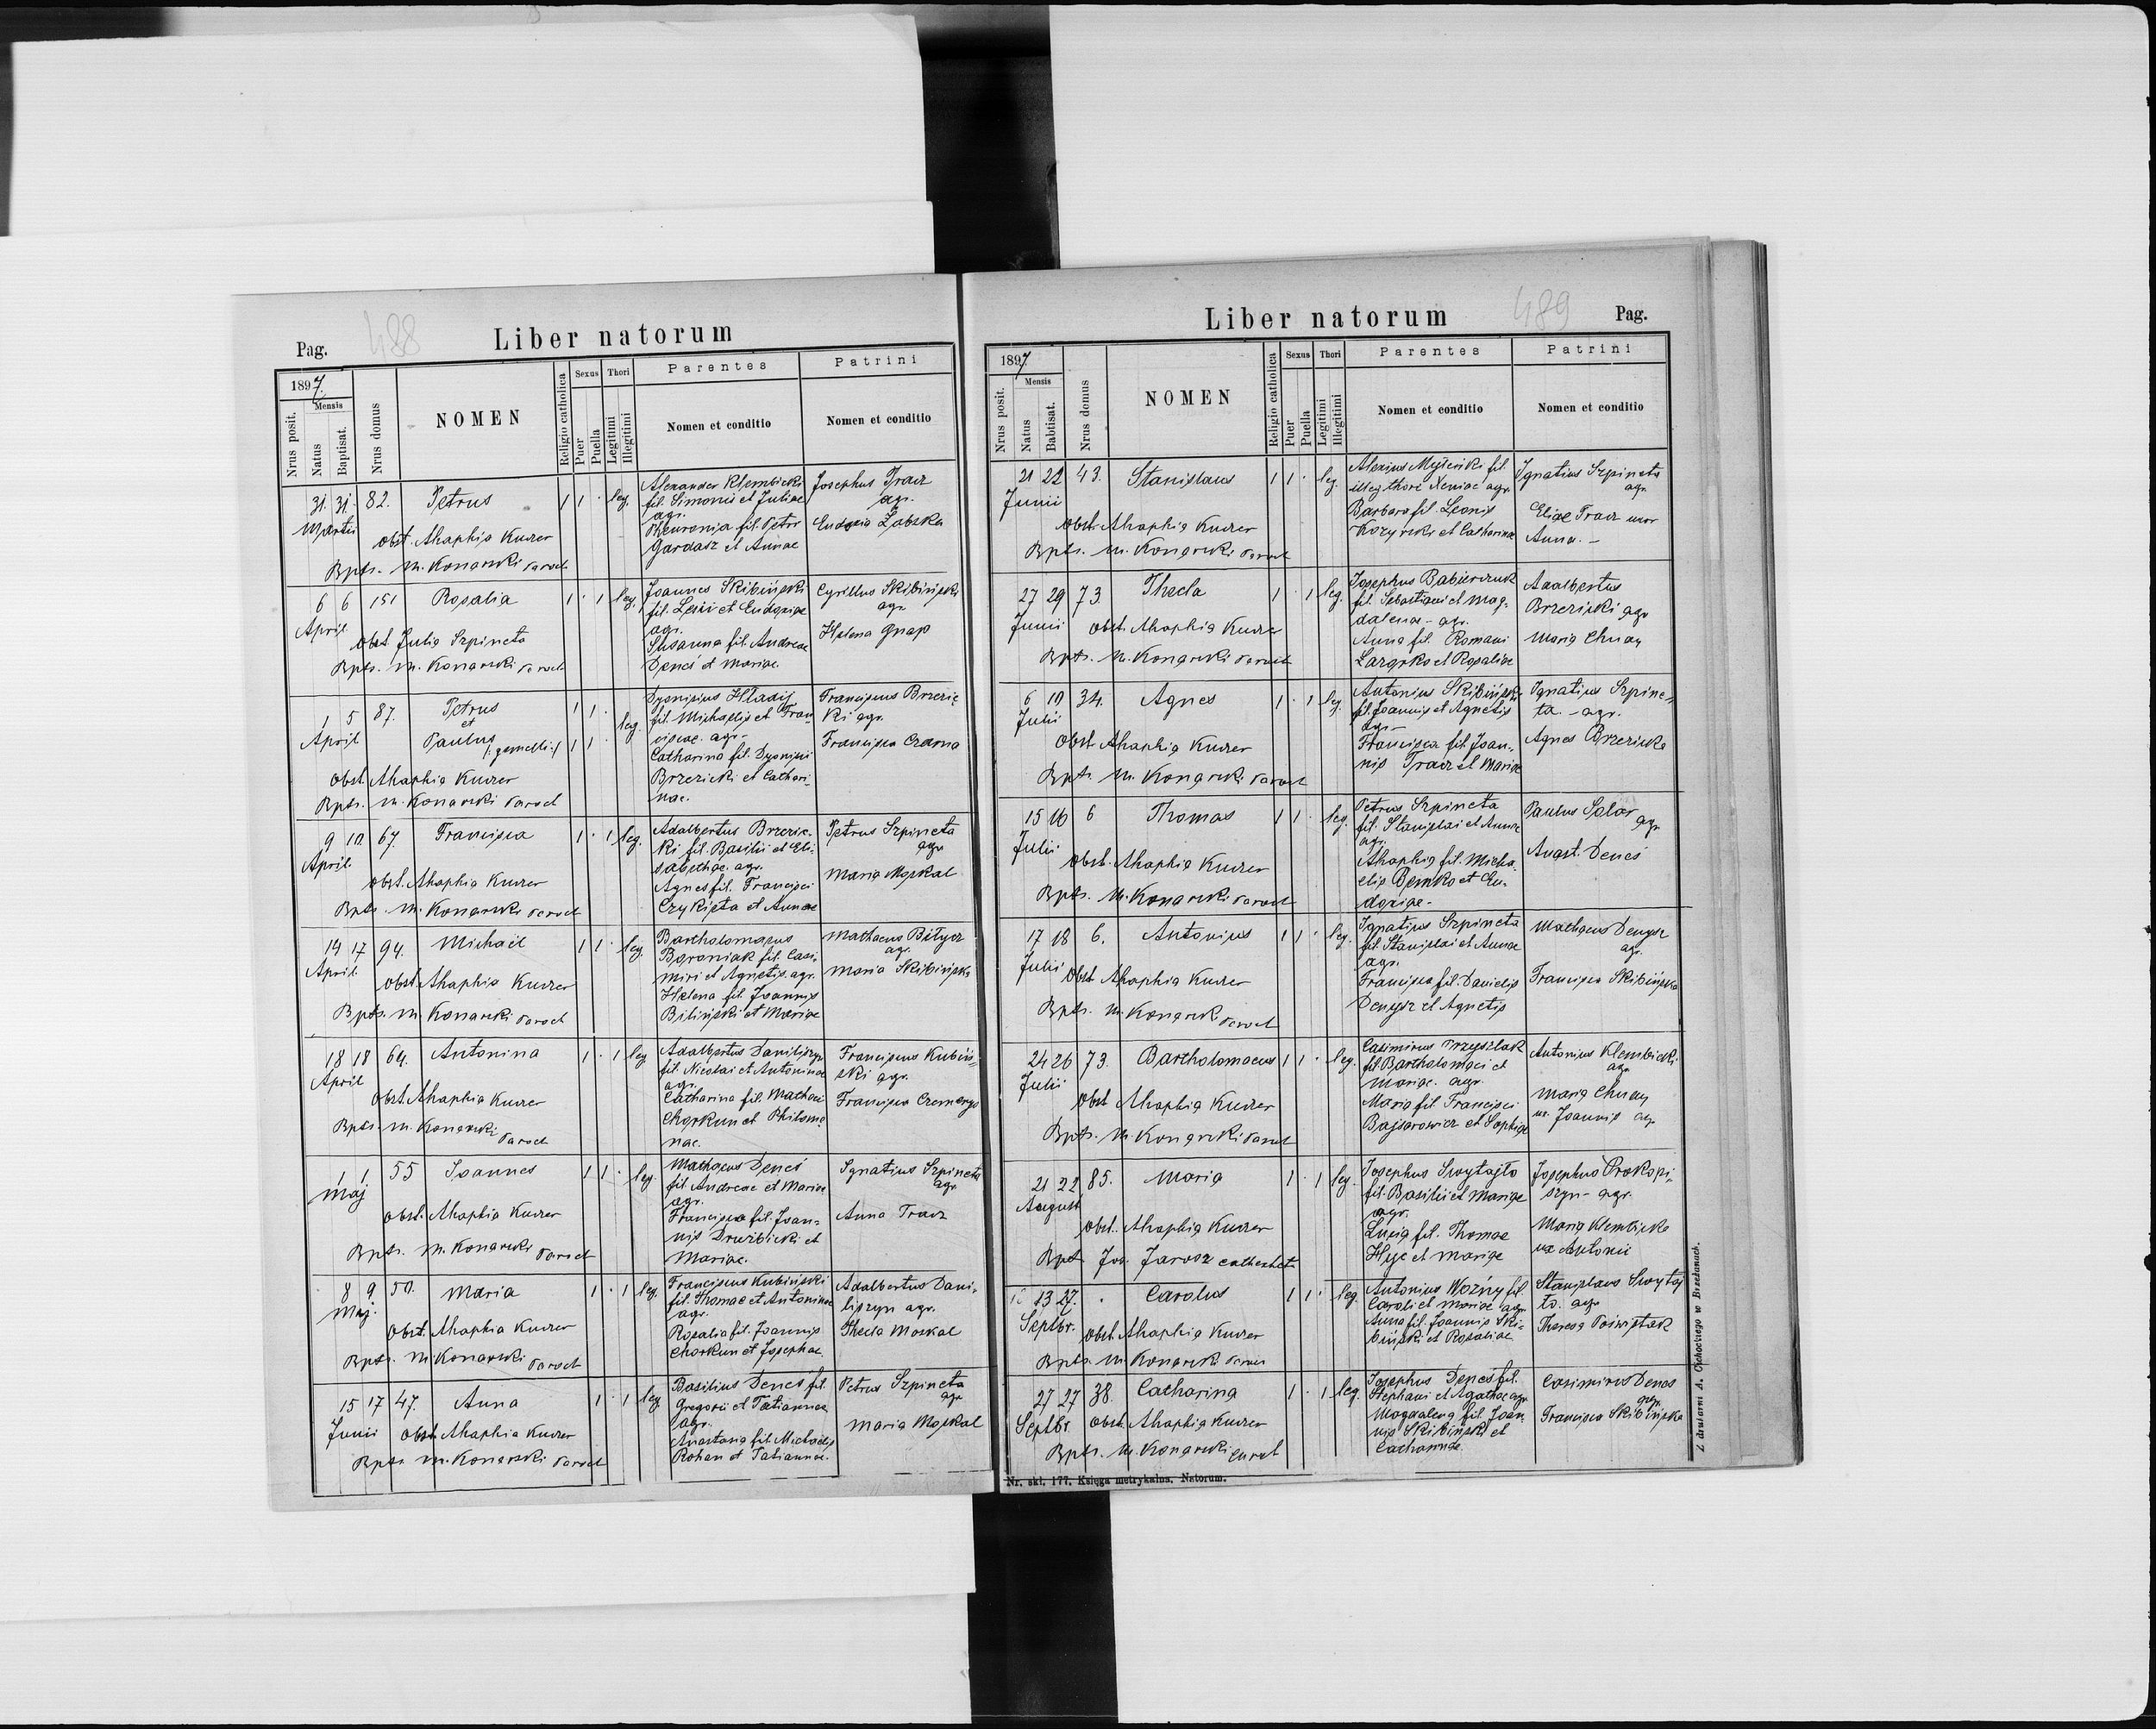 488
Pag.
Liber natorum
1897
Nrus posit.
Mensis
Natus
Baptisat.
Nrus domus
NOMEN
Religio catholica
Sexus
Puer
Puella
Thori
Legitimi
Illegitimi
Parentes
Nomen et conditio
Patrini
Nomen et conditio
31. 31. 82. Petrus 1 1 · leg.
Martii
obst. Ahaphia Kurzer
Bpts. M. Konarski Paroch
Alexander Klembicki
fil. Simonis et Juliae
agr.
fil. Petri
Gardasz et Annae
Josephus Tracz
agr.
Eudoxia Zabska
6 6 151 Rosalia 1 · 1 leg.
April
obst. Julia Szpineta
Bpts. M. Konarski Paroch
Joannes Skibiński
fil. Lesii et Eudoxiae
agr.
Susanna fil. Andreae
Deneś et Mariae.
Cyrillus Skibiński
agr.
Helena Gnap
1 5 87. Petrus 1 1 ·
et
April Paulus (gemelli) 1 1 · leg.
obst. Ahaphia Kurzer
Bpts. M. Konarski Paroch
Dyonisius Hladij
fil. Michaelis et Fran-
ciscae. agr.
Catharina fil. Dyonisii
Brzezicki et Cathari-
nae.
Franciscus Brzezic-
ki agr.
Francisca Czarna
9 10. 67. Francisca 1 · 1 leg.
April
obst. Ahaphia Kurzer
Bpts. M. Konarski Paroch
Adalbertus Brzezic-
ki fil. Basilii et Eli-
sabethae. agr.
Agnes fil. Francisci
Czykięta et Annae
Petrus Szpineta
agr.
Maria Moskal
14 17 94. Michaël 1 1 · leg.
April
obst. Ahaphia Kurzer
Bpts. M. Konarski Paroch
Bartholomaeus
Boroniak fil. Casi-
miri et Agnetis. agr.
Helena fil. Joannis
Biliński et Mariae
Mathaeus Bitycz
agr.
Maria Skibińska
18 18 64. Antonina 1 · 1 leg
April
obst. Ahaphia Kurzer
Bpts. M. Konarski Paroch
Adalbertus Daniliszyn
fil. Nicolai et Antoninae
agr.
Catharina fil. Mathaei
Chorkun et Philome-
nae.
Franciscus Kubiń-
ski agr.
Francisca
1 1 55 Joannes 1 1 · leg.
Maj
obst. Ahaphia Kurzer
Bpts. M. Konarski Paroch
Mathaeus Deneś
fil. Andreae et Mariae
agr.
Francisca fil. Joan-
nis Druzbicki et
Mariae.
Ignatius Szpineta
agr.
Anna Tracz
8 9 50. Maria 1 · 1 leg.
Maj.
obst. Ahaphia Kurzer
Bpts. M. Konarski Paroch
Franciscus Kubiński
fil. Thomae et Antoninae
agr.
Rosalia fil. Joannis
Chorkun et Josephae.
Adalbertus Dani-
liszyn agr.
Thecla Moskal
15 17 47. Anna 1 · 1 leg.
Junii
obst. Ahaphia Kurzer
Bpts. M. Konarski Paroch
Basilius Deneś fil.
Gregorii et Tatiannae
agr.
Anastasia fil. Michaëlis
Kohan et Tatiannae.
Petrus Szpineta
agr.
Maria Moskal
489
Liber natorum
Pag.
1897
Nrus posit.
Mensis
Natus
Babtisat.
Nrus domus
NOMEN
Religio catholica
Sexus
Puer
Puella
Thori
Legitimi
Illegitimi
Parentes
Nomen et conditio
Patrini
Nomen et conditio
21 22 43. Stanislaus 1 1 · leg.
Junii
obst. Ahaphia Kurzer
Bpts. M. Konarski Paroch
Alexius fil.
illeg. thori Xeniae agr.
Barbara fil. Leonis
Kozyrski et Catharinae
Ignatius Szpineta
agr.
Eliae Tracz uxor
Anna. -
27 29 73. Thecla 1 · 1 leg.
Junii
obst. Ahaphia Kurzer
Bpts. M. Konarski Paroch
Josephus Babierczuk
fil. Sebastiani et Mag-
dalenae - agr.
Anna fil. Romani
Lazorko et Rosaliae
Adalbertus
Brzezicki agr.
Maria Chuaa
6 10 34. Agnes 1 · 1 leg.
Julii
obst. Ahaphia Kurzer
Bpts. M. Konarski Paroch
Antonius Skibiński
fil. Joannis et Agnetis
agr.
Francisca fil. Joan-
nis Tracz et Mariae
Ignatius Szpine-
ta. - agr.
Agnes Brzezicka
15 16 6 Thomas 1 1 · leg.
Julii
obst. Ahaphia Kurzer
Bpts. M. Konarski Paroch
Petrus Szpineta
fil. Stanislai et Annae
agr.
Ahaphia fil. Micha-
elis Demko et Eu-
doxiae-
Paulus Solar
agr.
Anast. Deneś
17 18 6. Antonius 1 1 · leg.
Julii
obst. Ahaphia Kurzer
Bpts. M. Konarski Paroch
Ignatius Szpineta
fil. Stanislai et Annae
agr.
Francisca fil. Danielis
Denysz et Agnetis
Mathaeus Denysz
agr.
Francisca Skibińska
24 26 73. Bartholomaeus 1 1 · leg.
Julii
obst. Ahaphia Kurzer
Bpts. M. Konarski Paroch
Casimirus Przyszlak
fil. Bartholomaei et
Mariae. agr.
Maria fil. Francisci
Bajsarowicz et Sophiae
Antonius Klembicki
agr.
Maria Chuaa
ux. Joannis agr.
21 22 85. Maria 1 · 1 leg.
August
obst. Ahaphia Kurzer
Bpt. Jos. Jarosz cathechet
Josephus Swytajło
fil. Basilii et Mariae
agr.
Lucia fil. Thomae
Hyc et Mariae
Josephus Prokopi-
szyn - agr.
Maria Klembicka
ux. Antonii
13 27. . Carolus 1 1 · leg.
Septbr.
obst. Ahaphia Kurzer
Bpts. M. Konarski Paroch
Antonius Woźny fil.
Caroli et Mariae agr.
Anna fil. Joannis Ski-
biński et Rosaliae
Stanislaus Swytaj-
ło. agr.
Theresa
27 27 38. Catharina 1 · 1 leg.
Septbr.
obst. Ahaphia Kurzer
Bpts. M. Konarski Curat
Josephus Deneś fil.
Stephani et Agathae agr.
Magdalena fil. Joan-
nis Skibiński et
Catharinae.
Casimirus Denes
agr.
Francisca Skibińska
Nr. skł. 177. Księga metrykalna. Natorum.
Z drukarni A. Cichockiego w Brzeżanach.